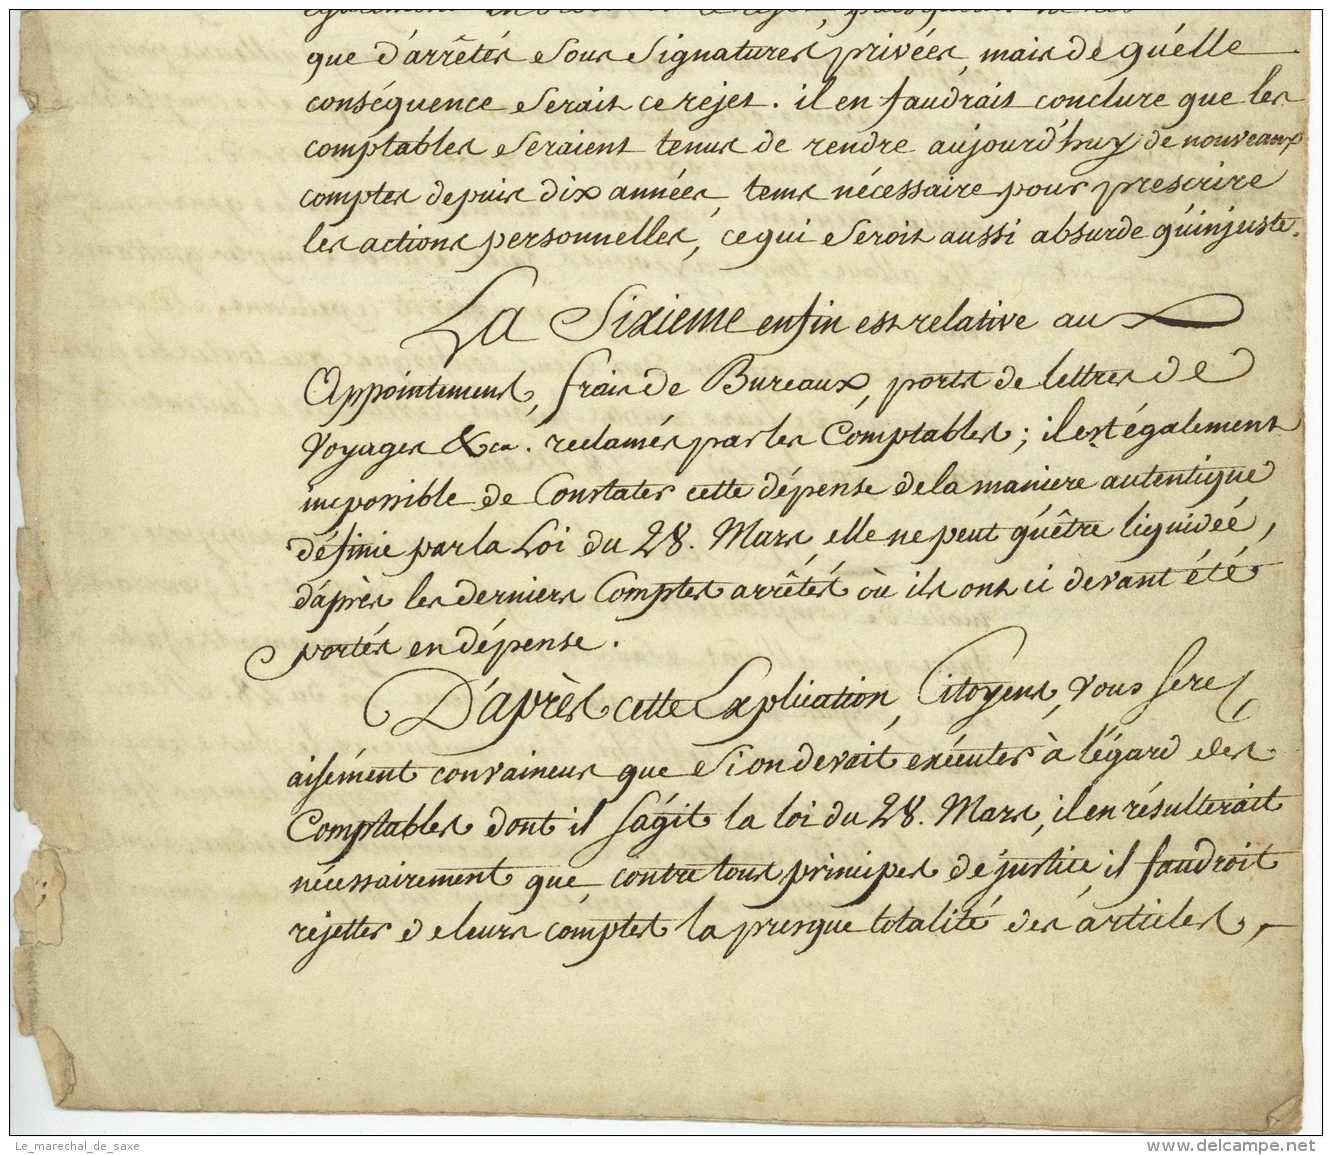 également
que d'arrêtés sous signatures privées, mais de quélle
conséquence serait ce rejet. il en faudrait conclure que les
comptables seraient tenus de rendre aujourd'huy de nouveaux
comptes depuis dix années, tems nécessaire pour prescrire
les actions personnelles, ce qui seroit aussi absurde qu'injuste.
La Sixieme enfin est relative au
Appointemens, frais de Bureaux, ports de lettres de
voyages &ca. reclamés par les Comptables; il est également
impossible de Constater cette dépense de la maniere autentique
définie par la Loi du 28. Mars, elle ne peut qu'être liquidée,
d'après les derniers Comptes arrêtés où ils ont ci devant été
portés en dépense.
D'après cette Explication, Citoyens, vous serez
aisément convaincus que si on devait exécuter à l'égard des
Comptables dont il s'ágit la loi du 28. Mars, il en résulterait
nécessairement que contre tous principes de justice il faudroit
rejetter de leurs comptes la presque totalité des articles,
Le_marechal_de_saxe
www.delcampe.net